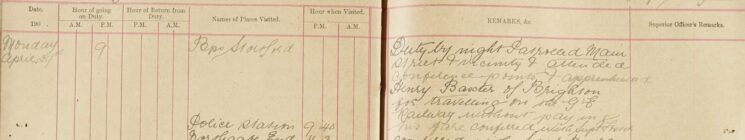 Date. Hour of going on Duty. Hour of Return from Duty. Names of Places Visited. Hour when Visited. REMARKS, &c. Superior Officer's Remarks.
190 A.M. P.M. A.M. P.M. A.M. P.M.
Monday 9 Stortford Duty by night Patrolled Main
April street & vicinity & attended
conference points & apprehended
Henry Baxter of Brighton
for travelling on the G E
Police Station 9 40 Railway without paying
End his fare conferred with Supt